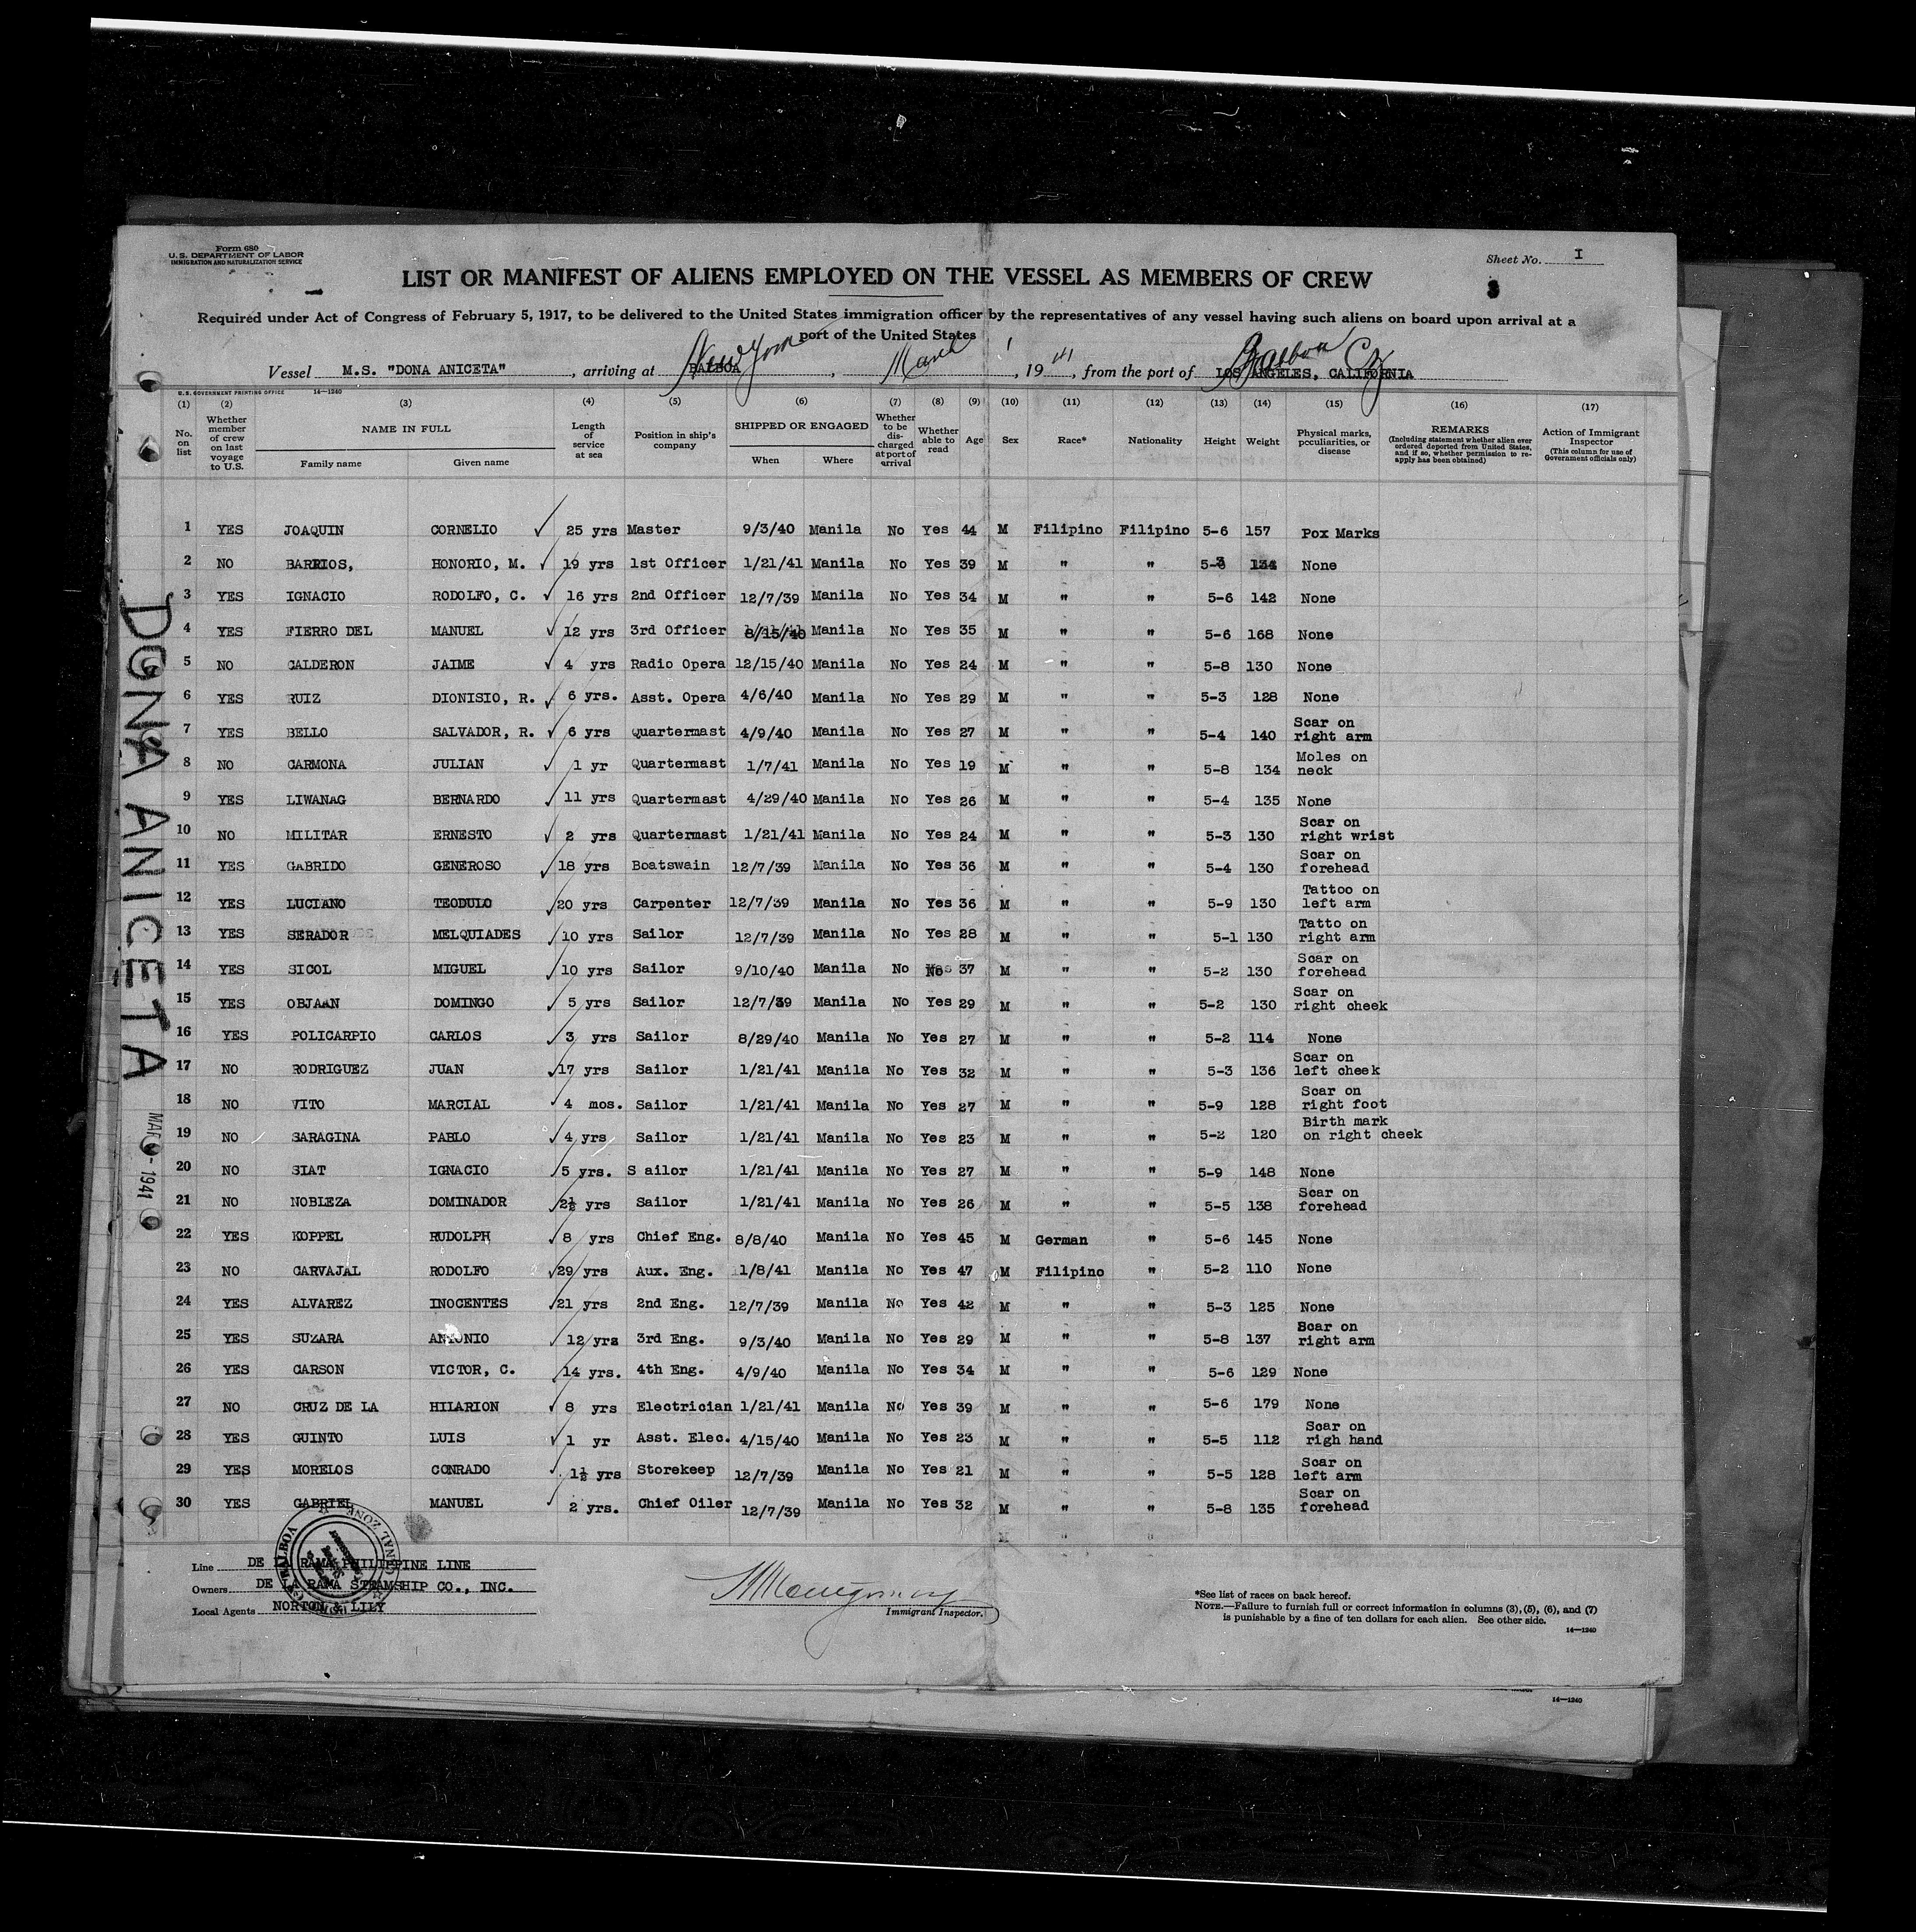 Form 680
U. S. DEPARTMENT OF LABOR
IMMIGRATION AND NATURALIZATION SERVICE
Sheet No. I
3
LIST OR MANIFEST OF ALIENS EMPLOYED ON THE VESSEL AS MEMBERS OF CREW
Required under Act of Congress of February 5, 1917, to be delivered to the United States immigration officer by the representatives of any vessel having such aliens on board upon arrival at a
port of the United States
New York
Balboa CZ
Vessel M.S. "DONA ANICETA", arriving at BALBOA, March 1, 1941, from the port of LOS ANGELES, CALIFORNIA
U. S. GOVERNMENT PRINTING OFFICE 14—1240
(1) (2) (3) (4) (5) (6) (7) (8) (9) (10) (11) (12) (13) (14) (15) (16) (17)
No. on list
Whether member of crew on last voyage to U.S.
NAME IN FULL
Family name Given name
Length of service at sea
Position in ship's company
SHIPPED OR ENGAGED
When Where
Whether to be discharged at port of arrival
Whether able to read
Age
Sex
Race*
Nationality
Height
Weight
Physical marks, peculiarities, or disease
REMARKS
(Including statement whether alien ever ordered deported from United States, and if so, whether permission to re-apply has been obtained)
Action of Immigrant Inspector
(This column for use of Government officials only)
1 YES JOAQUIN CORNELIO 25 yrs Master 9/3/40 Manila No Yes 44 M Filipino Filipino 5-6 157 Pox Marks
2 NO BARRIOS, HONORIO, M. 19 yrs 1st Officer 1/21/41 Manila No Yes 39 M " " 5-3 134 None
3 YES IGNACIO RODOLFO, C. 16 yrs 2nd Officer 12/7/39 Manila No Yes 34 M " " 5-6 142 None
4 YES FIERRO DEL MANUEL 12 yrs 3rd Officer 8/15/40 Manila No Yes 35 M " " 5-6 168 None
5 NO CALDERON JAIME 4 yrs Radio Opera 12/15/40 Manila No Yes 24 M " " 5-8 130 None
6 YES RUIZ DIONISIO, R. 6 yrs. Asst. Opera 4/6/40 Manila No Yes 29 M " " 5-3 128 None
7 YES BELLO SALVADOR, R. 6 yrs Quartermast 4/9/40 Manila No Yes 27 M " " 5-4 140 Scar on right arm
8 NO CARMONA JULIAN 1 yr Quartermast 1/7/41 Manila No Yes 19 M " " 5-8 134 Moles on neck
9 YES LIWANAG BERNARDO 11 yrs Quartermast 4/29/40 Manila No Yes 26 M " " 5-4 135 None
10 NO MILITAR ERNESTO 2 yrs Quartermast 1/21/41 Manila No Yes 24 M " " 5-3 130 Scar on right wrist
11 YES GABRIDO GENEROSO 18 yrs Boatswain 12/7/39 Manila No Yes 36 M " " 5-4 130 Scar on forehead
12 YES LUCIANO TEODULO 20 yrs Carpenter 12/7/39 Manila No Yes 36 M " " 5-9 130 Tattoo on left arm
13 YES SERADOR MELQUIADES 10 yrs Sailor 12/7/39 Manila No Yes 28 M " " 5-1 130 Tatto on right arm
14 YES SICOL MIGUEL 10 yrs Sailor 9/10/40 Manila No No 37 M " " 5-2 130 Scar on forehead
15 YES OBJAAN DOMINGO 5 yrs Sailor 12/7/39 Manila No Yes 29 M " " 5-2 130 Scar on right cheek
16 YES POLICARPIO CARLOS 3 yrs Sailor 8/29/40 Manila No Yes 27 M " " 5-2 114 None
17 NO RODRIGUEZ JUAN 17 yrs Sailor 1/21/41 Manila No Yes 32 M " " 5-3 136 Scar on left cheek
18 NO VITO MARCIAL 4 mos. Sailor 1/21/41 Manila No Yes 27 M " " 5-9 128 Scar on right foot
19 NO SARAGINA PABLO 4 yrs Sailor 1/21/41 Manila No Yes 23 M " " 5-2 120 Birth mark on right cheek
20 NO SIAT IGNACIO 5 yrs. S ailor 1/21/41 Manila No Yes 27 M " " 5-9 148 None
21 NO NOBLEZA DOMINADOR 2½ yrs Sailor 1/21/41 Manila No Yes 26 M " " 5-5 138 Scar on forehead
22 YES KOPPEL RUDOLPH 8 yrs Chief Eng. 8/8/40 Manila No Yes 45 M German " 5-6 145 None
23 NO CARVAJAL RODOLFO 29 yrs Aux. Eng. 1/8/41 Manila No Yes 47 M Filipino " 5-2 110 None
24 YES ALVAREZ INOCENTES 21 yrs 2nd Eng. 12/7/39 Manila No Yes 42 M " " 5-3 125 None
25 YES SUZARA ANTONIO 12 yrs 3rd Eng. 9/3/40 Manila No Yes 29 M " " 5-8 137 Scar on right arm
26 YES CARSON VICTOR, C. 14 yrs. 4th Eng. 4/9/40 Manila No Yes 34 M " " 5-6 129 None
27 NO CRUZ DE LA HILARION 8 yrs Electrician 1/21/41 Manila No Yes 39 M " " 5-6 179 None
28 YES GUINTO LUIS 1 yr Asst. Elec. 4/15/40 Manila No Yes 23 M " " 5-5 112 Scar on righ hand
29 YES MORELOS CONRADO 1½ yrs Storekeep 12/7/39 Manila No Yes 21 M " " 5-5 128 Scar on left arm
30 YES GABRIEL MANUEL 2 yrs. Chief Oiler 12/7/39 Manila No Yes 32 M " " 5-8 135 Scar on forehead
DONA ANICETA
MAR - 1941
Line DE LA RAMA PHILIPPINE LINE
Owners DE LA RAMA STEAMSHIP CO., INC.
Local Agents NORTON & LILY
BALBOA CANAL ZONE
Montgomery
Immigrant Inspector.
*See list of races on back hereof.
NOTE.—Failure to furnish full or correct information in columns (3), (5), (6), and (7)
is punishable by a fine of ten dollars for each alien. See other side.
14—1240
14—1240